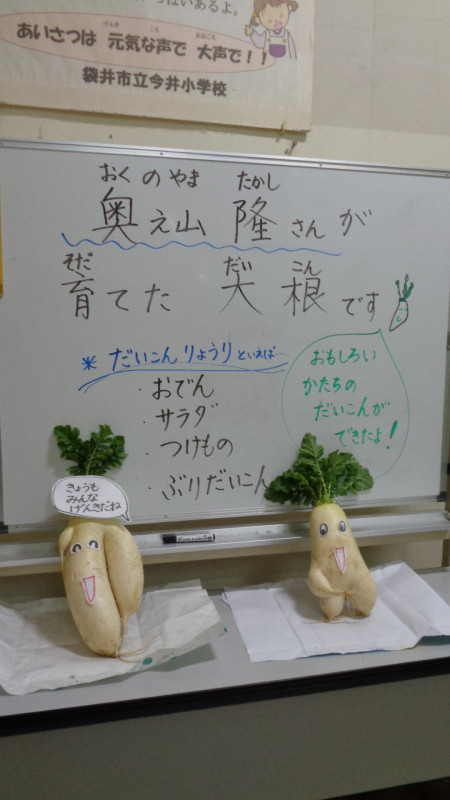 ぱいあるよ。
あいさつは 元気な声で 大声で!!
げんき こえ おおごえ
袋井市立今井小学校
おくのやま たかし
奥え山 隆さんが
そだ だい こん
育てた 大根です
※ だいこんりょうりといえば…
・おでん
・サラダ
・つけもの
・ぶりだいこん
おもしろい
かたちの
だいこんが
できたよ!
きょうも
みんな
げんきだね